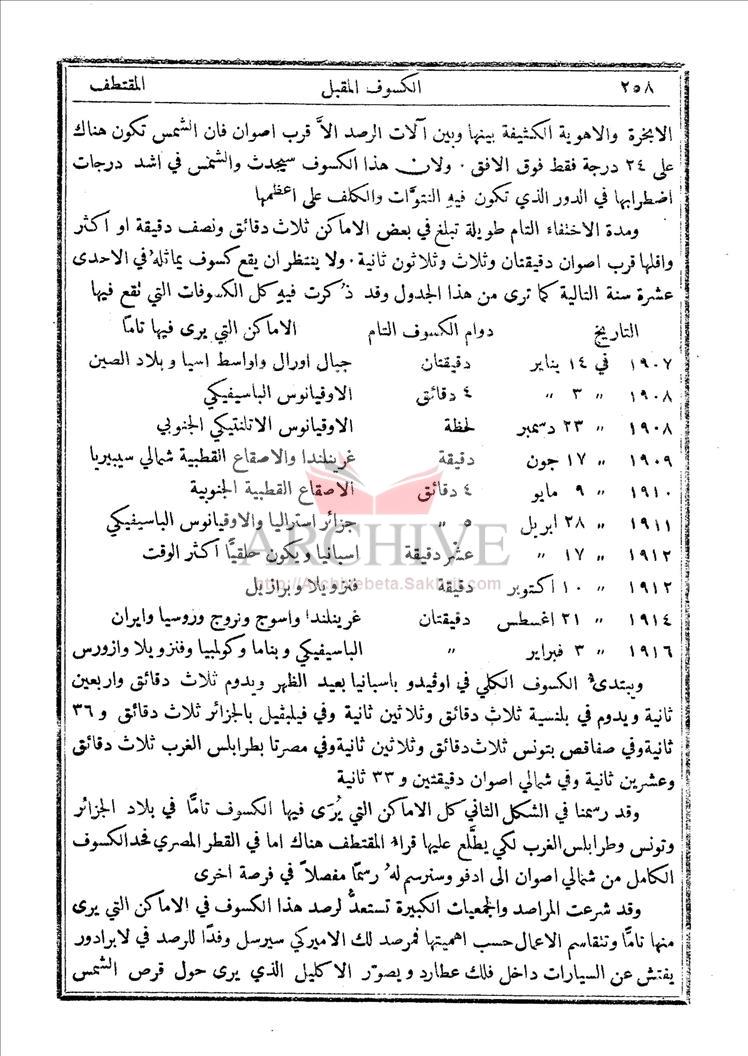 ٢٥٨ الكسوف المقبل المقتطف
الابخرة والاهوية الكثيفة بينها وبين آلات الرصد الاَّ قرب اصوان فان الشمس تكون هناك
على ٢٤ درجة فقط فوق الافق · ولان هذا الكسوف سيحدث والشمس في اشد درجات
اضطرابها في الدور الذي تكون فيهِ النتوَّات والكلف على اعظمها
ومدة الاختفاء التام طويلة تبلغ في بعض الاماكن ثلاث دقائق ونصف دقيقة او اكثر
واقلها قرب اصوان دقيقتان وثلاث وثلاثون ثانية · ولا ينتظر ان يقع كسوف يماثلهُ في الاحدى
عشرة سنة التالية كما ترى من هذا الجدول وقد ذُكرت فيهِ كل الكسوفات التي تقع فيها
التاريخ دوام الكسوف التام الاماكن التي يرى فيها تامًّا
١٩٠٧ في ١٤ يناير دقيقتان جبال اورال واواسط اسيا وبلاد الصين
١٩٠٨ " ٣ " ٤ دقائق الاوقيانوس الباسيفيكي
١٩٠٨ " ٢٣ دسمبر لحظة الاوقيانوس الاتلنتيكي الجنوبي
١٩٠٩ " ١٧ جون دقيقة غرينلندا والاصقاع القطبية شمالي سيبيريا
١٩١٠ " ٩ مايو ٤ دقائق الاصقاع القطبية الجنوبية
١٩١١ " ٢٨ ابريل ٥ " جزائر استراليا والاوقيانوس الباسيفيكي
ARCHIVE
١٩١٢ " ١٧ " عشر دقيقة اسبانيا ويكون حلقيًّا اكثر الوقت
http://Archivebeta.Sakhrit.com
١٩١٢ " ١٠ اكتوبر دقيقة فنزويلا وبرازيل
١٩١٤ " ٢١ اغسطس دقيقتان غرينلندا واسوج ونروج وروسيا وايران
١٩١٦ " ٣ فبراير " الباسيفيكي وبناما وكولمبيا وفنزويلا وازورس
ويبتدئ الكسوف الكلي في اوفيدو باسبانيا بعيد الظهر ويدوم ثلاث دقائق واربعين
ثانية ويدوم في بلنسية ثلاث دقائق وثلاثين ثانية وفي فيلبفيل بالجزائر ثلاث دقائق و ٣٦
ثانية وفي صفاقص بتونس ثلاث دقائق وثلاثين ثانية وفي مصرتا بطرابلس الغرب ثلاث دقائق
وعشرين ثانية وفي شمالي اصوان دقيقتين و ٣٣ ثانية
وقد رسمنا في الشكل الثاني كل الاماكن التي يُرَى فيها الكسوف تامًّا في بلاد الجزائر
وتونس وطرابلس الغرب لكي يطَّلع عليها قراءُ المقتطف هناك اما في القطر المصري فحد الكسوف
الكامل من شمالي اصوان الى ادفو وسنرسم لهُ رسمًا مفصلاً في فرصة اخرى
وقد شرعت المراصد والجمعيات الكبيرة تستعدُّ لرصد هذا الكسوف في الاماكن التي يرى
منها تامًّا وتتقاسم الاعمال حسب اهميتها فمرصد لك الاميركي سيرسل وفدًا للرصد في لابرادور
يفتش عن السيارات داخل فلك عطارد ويصوّر الاكليل الذي يرى حول قرص الشمس